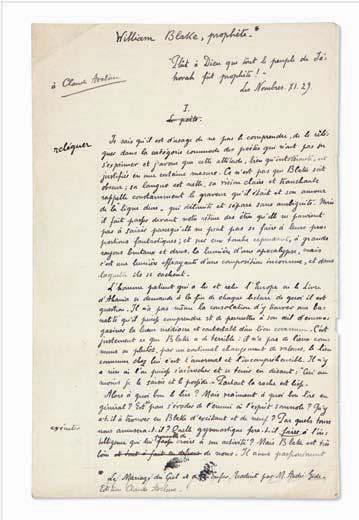 William Blake, prophète.*
Plût à Dieu que tout le peuple de Jé-
hovah fût prophète !
à Claude Aveline
Les Nombres. XI. 29.
I.
Le poète.
Je sais qu'il est d'usage de ne pas le comprendre, de le
reléguer
guer dans la catégorie commode des poètes qui n'ont pas su
s'exprimer et j'avoue que cette attitude, bien qu'intolérante, est
justifiée en une certaine mesure. Ce n'est pas que Blake soit
obscur ; sa langue est nette, sa vision claire et tranchante
rappelle constamment le graveur qu'il était et son amour
de la ligne dure, qui délimite et sépare sans ambiguïté. Mais
il fait parfois devant notre rétine des êtres qu'elle ne parvient
pas à saisir parce qu'elle ne peut pas se faire à leurs pro-
portions fantastiques ; et sur eux tombe cependant, à grands
rayons brutaux et drus, la lumière d'une apocalypse, mais
c'est une lumière effrayante d'une composition inconnue, et dans
laquelle ils se cachent.
L'homme patient qui a lu et relu l'Europe ou le Livre
d'Ahania se demande à la fin de chaque lecture de quoi il est
question. Il n'a pas même la consolation d'y trouver une ba-
nalité qu'il puisse comprendre et de permettre à son œil d'emma-
gasiner la lueur médiocre et confortable d'un lieu commun. C'est
justement ce que Blake a de terrible : il n'a pas de lieux com-
muns ou plutôt, par un continuel changement de valeurs, le lieu
commun chez lui c'est l'anormal et l'incompréhensible. Il n'y
a rien où l'on puisse s'accrocher et se tenir en disant : "Ceci au
moins je le saisis et le possède." Partout la roche est lisse.
Alors à quoi bon le lire ? Mais vraiment à quoi bon lire en
général ? Est-ce pas s'évader de l'ennui où l'esprit somnole ? Qu'y
a-t-il à trouver en Blake d'excitant et de neuf ? Par quels tours
nous amusera-t-il ? Quelle gymnastique fera-t-il faire à l'in-
telligence qui lui à son activité ? Mais Blake est très
loin de nous. Il nous
* Le Mariage du Ciel et de l'Enfer, traduit par M. André Gide.
Edition Claude Aveline.